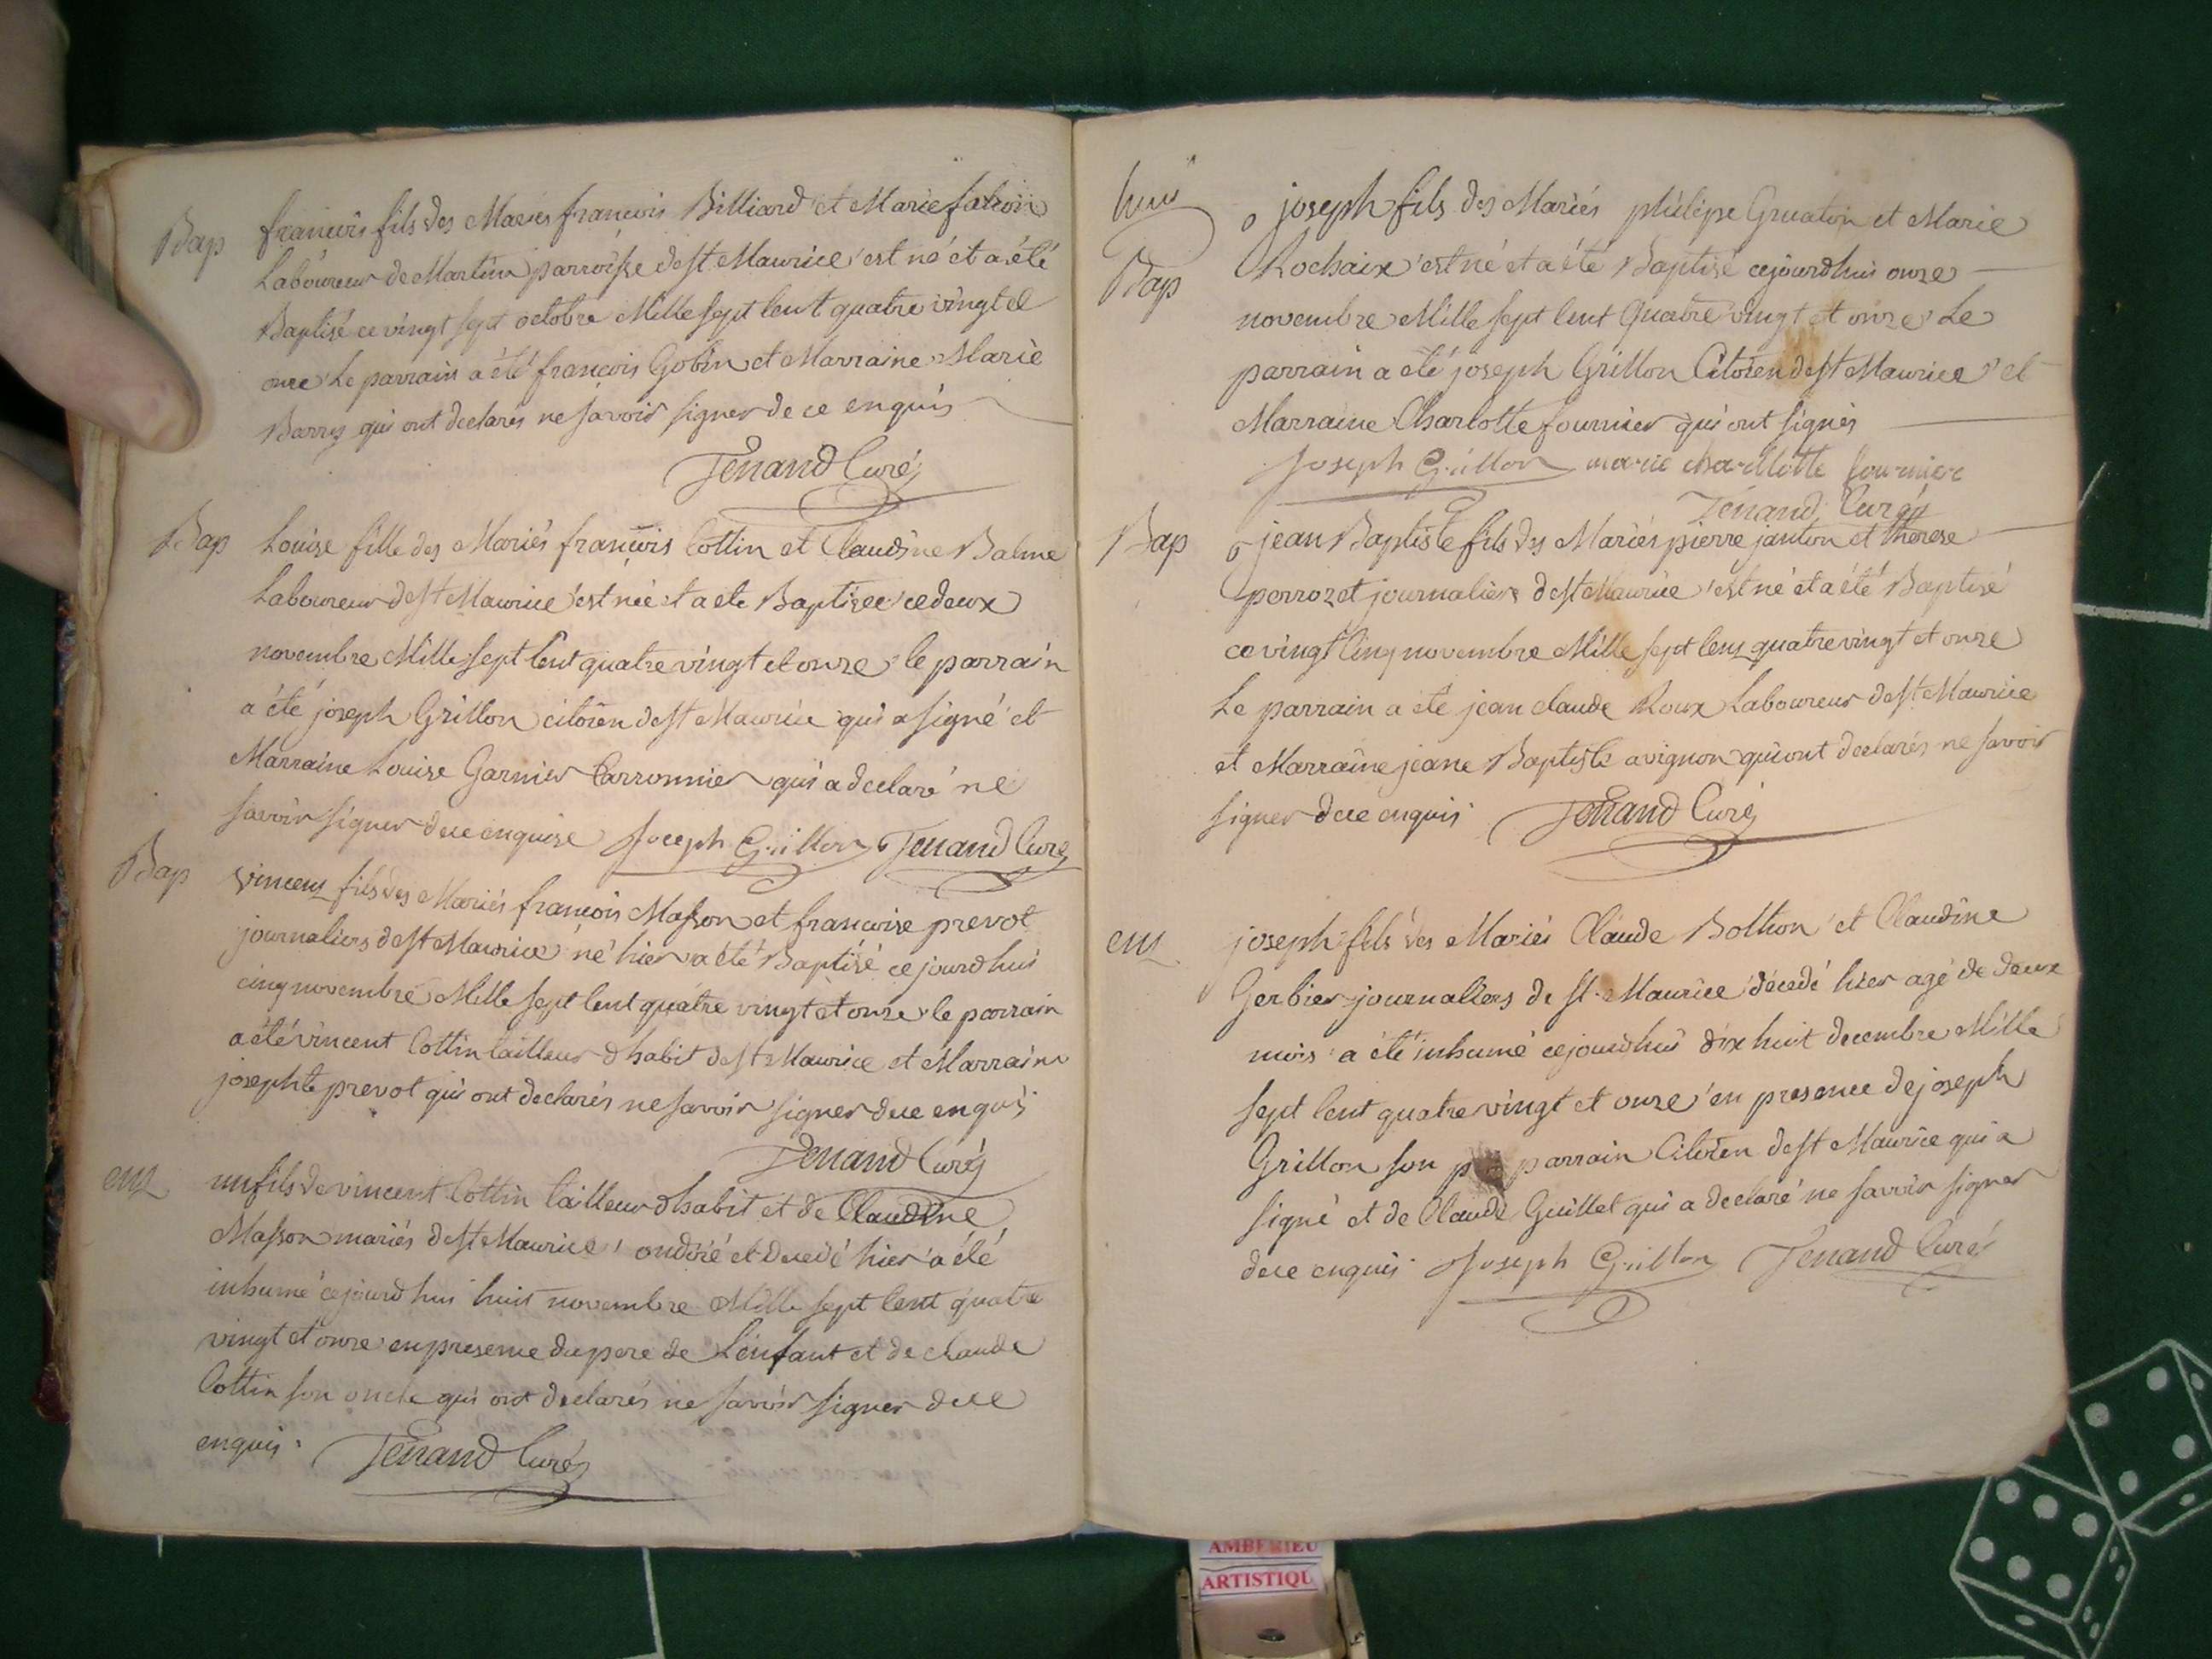 Bap
francois fils des Mariés francois Billiard et Marie falcon
Laboureur de Martin parroisse de st Maurice est né et a été
Baptisé ce vingt sept octobre Mille sept Cent quatre vingt et
onze Le parrain a été françois Gobin et Marraine Marie
Barry qui ont declarés ne savoir signer de ce enquis
Tenand Curé
Bap
Louise fille des Mariés francois Cottin et Claudine Balme
Laboureur de st Maurice est née et a ete Baptisee ce deux
novembre Mille sept Cent quatre vingt et onze le parrain
a été joseph Grillon citoien de st Maurice qui a signé et
Marraine Louise Garnier Carronnier qui a declaré ne
savoir signer de ce enquise Joseph Grillon Tenand Curé
Bap
vincens fils des Mariés françois Masson et francoise prevot
journaliers de st Maurice né hier a été Baptisé ce jourdhui
cinq novembre Mille sept Cent quatre vingt et onze le parrain
a été vincent Cottin tailleur dhabit de st Maurice et Marraine
josephte prevot qui ont declarés ne savoir signer de ce enquis
Tenand Curé
ens
un fils de vincent Cottin tailleur dhabit et de Claudine
Masson mariés de st Maurice ondoié et decedé hier a été
inhumé cejourdhui huit novembre Mille sept Cent quatre
vingt et onze en presence du pere de Lenfant et de claude
Cottin son oncle qui ont declarés ne savoir signer de ce
enquis. Tenand Curé
huit
Bap
joseph fils des Mariés philipe Gruaton et Marie
Rochaix est né et a été Baptisé cejourdhui onze
novembre Mille sept Cent Quatre vingt et onze Le
parrain a été joseph Grillon Citoien de st Maurice et
Marraine Charlotte fournier qui ont signés
Joseph Grillon marie charllotte fournier
Tenand Curé
Bap
jean Baptiste fils des Mariés pierre janton et therese
perrozet journaliers de st Maurice est né et a été Baptisé
ce vingt Cinq novembre Mille sept Cens quatre vingt et onze
Le parrain a été jean claude Roux Laboureur de st Maurice
et Marraine jeane Baptiste avignon qui ont declarés ne savoir
signer de ce enquis. Tenand Curé
ens
joseph fils des Mariés Claude Bolthon et Claudine
Gerbier journaliers de st. Maurice décedé hier agé de deux
mois a été inhumé cejourdhui dix huit decembre Mille
sept Cent quatre vingt et onze en presence de joseph
Grillon son parrain Citoien de st Maurice qui a
signé et de Claude Guillet qui a declaré ne savoir signer
de ce enquis. Joseph Grillon Tenand Curé
AMBERIEU
ARTISTIQU